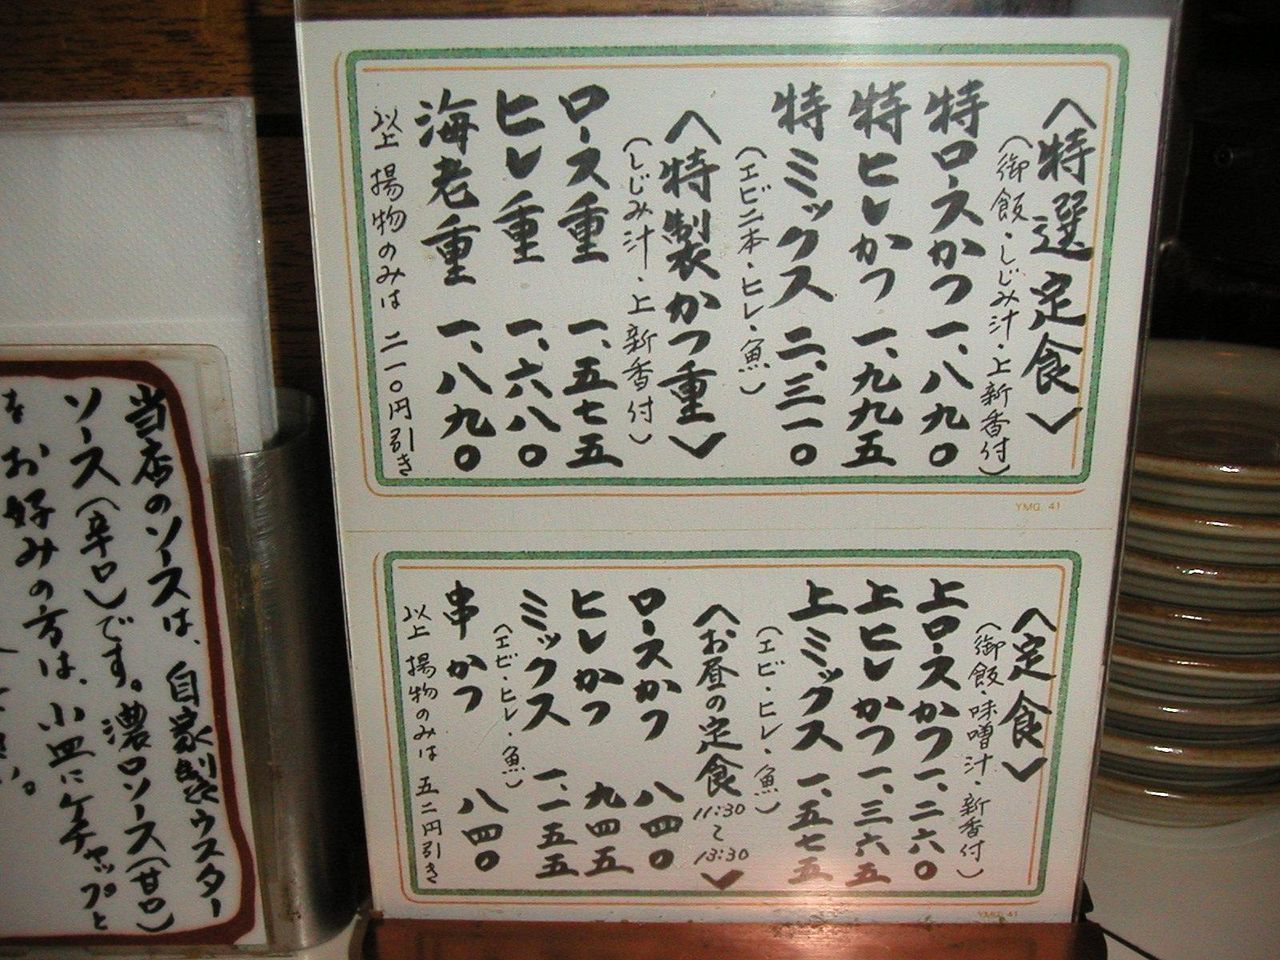 〈特選定食〉
(御飯・しじみ汁・上新香付)
特ロースかつ 一、八九〇
特ヒレかつ 一、九九五
特ミックス 二、三一〇
(エビ二本・ヒレ・魚)
〈特製かつ重〉
(しじみ汁・上新香付)
ロース重 一、五七五
ヒレ重 一、六八〇
海老重 一、八九〇
以上 揚物のみは 二一〇円引き
YMG. 41
〈定食〉
(御飯・味噌汁・新香付)
上ロースかつ 一、二六〇
上ヒレかつ 一、三六五
上ミックス 一、五七五
(エビ・ヒレ・魚)
〈お昼の定食 11:30〜13:30〉
ロースかつ 八四〇
ヒレかつ 九四五
ミックス 一、一五五
(エビ・ヒレ・魚)
串かつ 八四〇
以上 揚物のみは 五二円引き
YMG. 41
当店のソースは、自家製ウスター
ソース(辛口)です。濃口ソース(甘口)
をお好みの方は、小皿にケチャップと